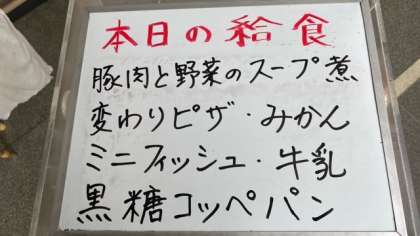 本日の給食
豚肉と野菜のスープ煮
変わりピザ・みかん
ミニフィッシュ・牛乳
黒糖コッペパン